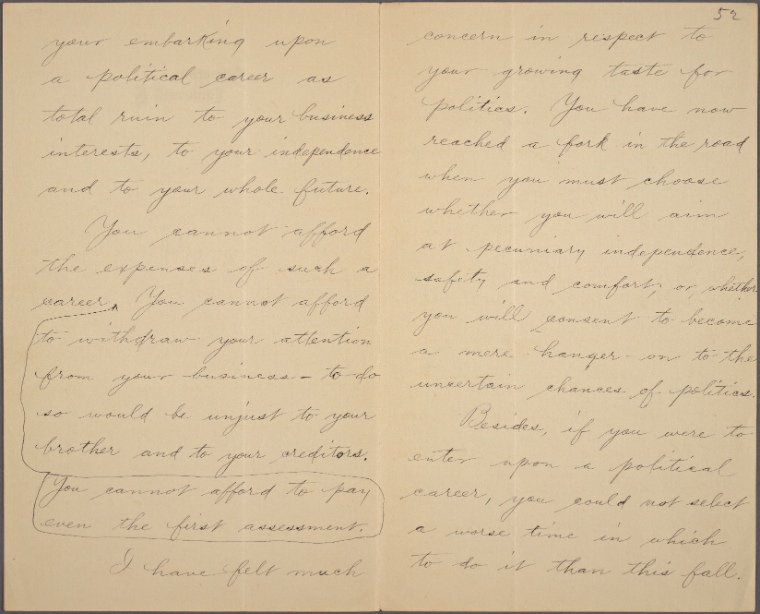 your embarking upon
a political career as
total ruin to your business
interests, to your independence
and to your whole future.
You cannot afford
the expenses of such a
career ^ You cannot afford
to withdraw your attention
from your business – to do
so would be unjust to your
brother and to your creditors.
You cannot afford to pay
even the first assessment.
I have felt much
52
concern in respect to
your growing taste for
politics. You have now
reached a fork in the road
when you must choose
whether you will aim
at pecuniary independence,
safety and comfort, or, whether
you will consent to become
a mere hanger-on to the
uncertain chances of politics.
Besides, if you were to
enter upon a political
career, you could not select
a worse time in which
to do it than this fall.